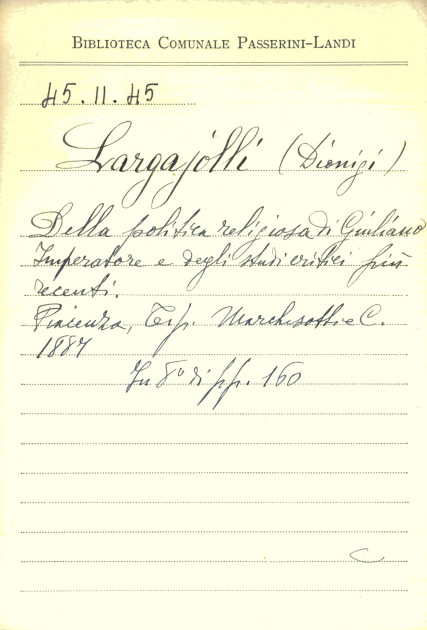 BIBLIOTECA COMUNALE PASSERINI-LANDI
45.11.45
Largajolli (Dionigi)
Della politica religiosa di Giuliano
Imperatore e degli studi critici più
recenti.
Piacenza, Tip. Marchesotti e C.
1887
In 8° di pp. 160
C